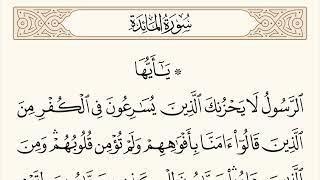 سُورَةُ المَائِدَةِ
۞ يَٰٓأَيُّهَا
ٱلرَّسُولُ لَا يَحْزُنكَ ٱلَّذِينَ يُسَٰرِعُونَ فِى ٱلْكُفْرِ مِنَ
ٱلَّذِينَ قَالُوٓا۟ ءَامَنَّا بِأَفْوَٰهِهِمْ وَلَمْ تُؤْمِن قُلُوبُهُمْ ۛ وَمِنَ